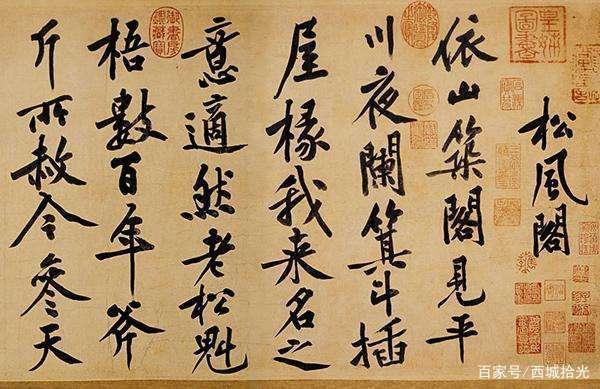 松風閣
依山築閣見平
川夜闌箕斗插
屋椽我来名之
意適然老松魁
梧數百年斧
斤所赦今參天
百家号/西城拾光